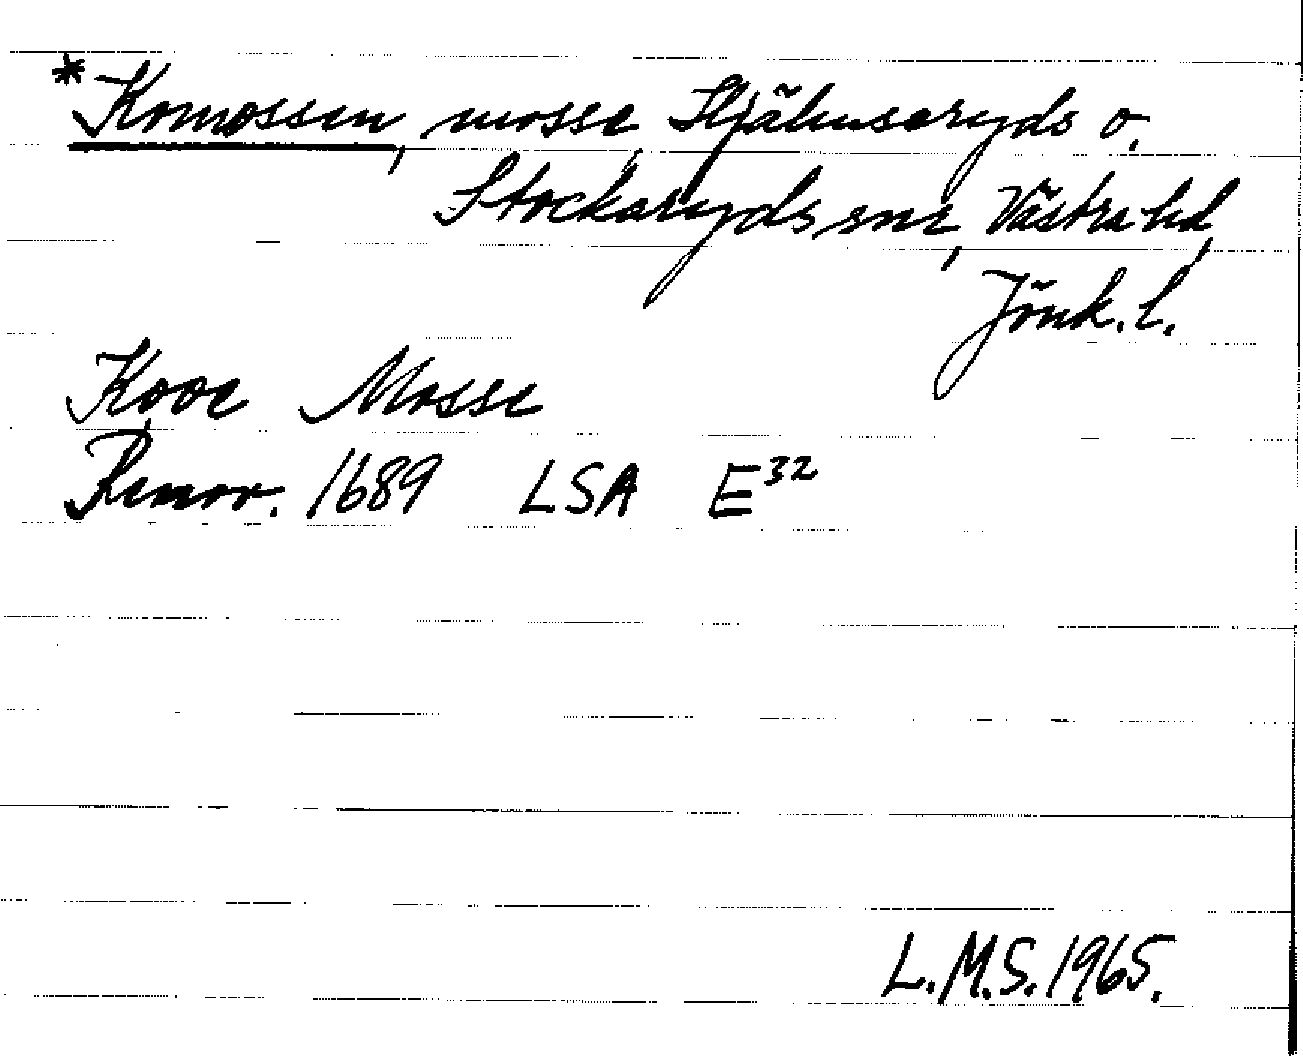 *Komossen, mosse, Hjälmseryds o.
Stockaryds snr, Västra hd,
Jönk. l.
Kooe Mosse
Renov. 1689 LSA E32
L.M.S. 1965.